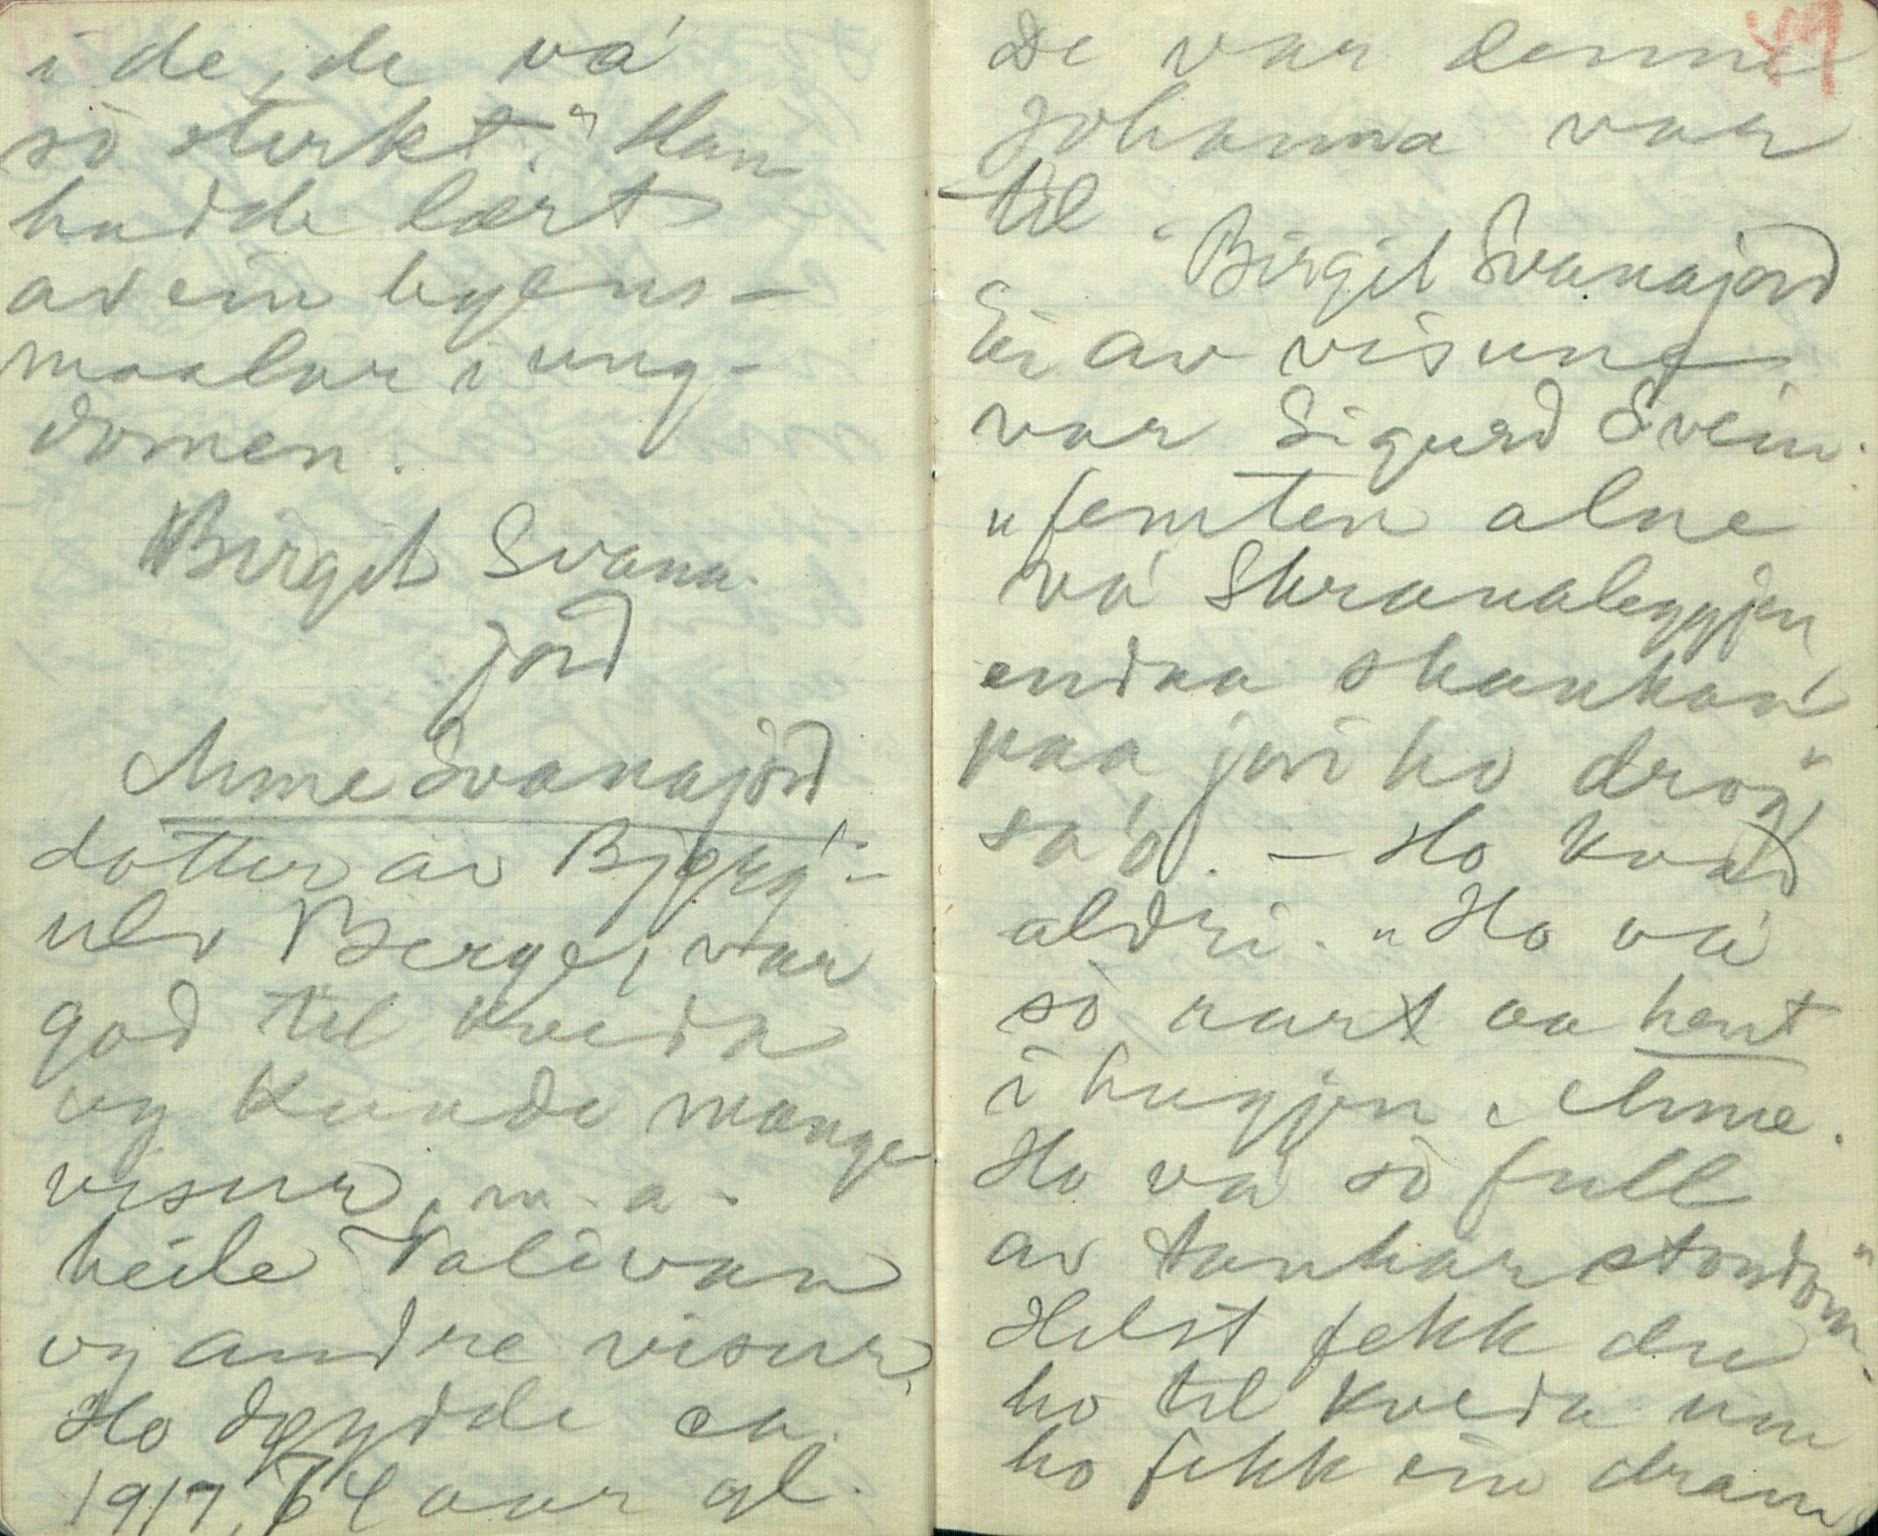 i de, de vá
sò sterkt." Han
hadde lært
av ein bygens-
maalar i ung-
domen.
Birgit Svana-
jord
Anne Svanajord
dotter av Bjørg-
ulv Berge, var
god til kveda
og kunde mange
visur, m. a.
heile Valivan
og andre visur.
Ho døydde ca.
1917, 64 aar gl.
49
De var denne
Johanna var
til.
Birgit Svanajord
Ei av visune
var Sigurd Svein.
"femten alne
vá Skranaleggjen
endaa skankan'
paa jori ho drog"
sa'o. — Ho kvad
aldri. "Ho vá
sò rart aa hent
i hugjen, Anne.
Ho vá sò full
av tankar stondom"
Helst fekk du
ho til kveda um
ho fekk ein dram